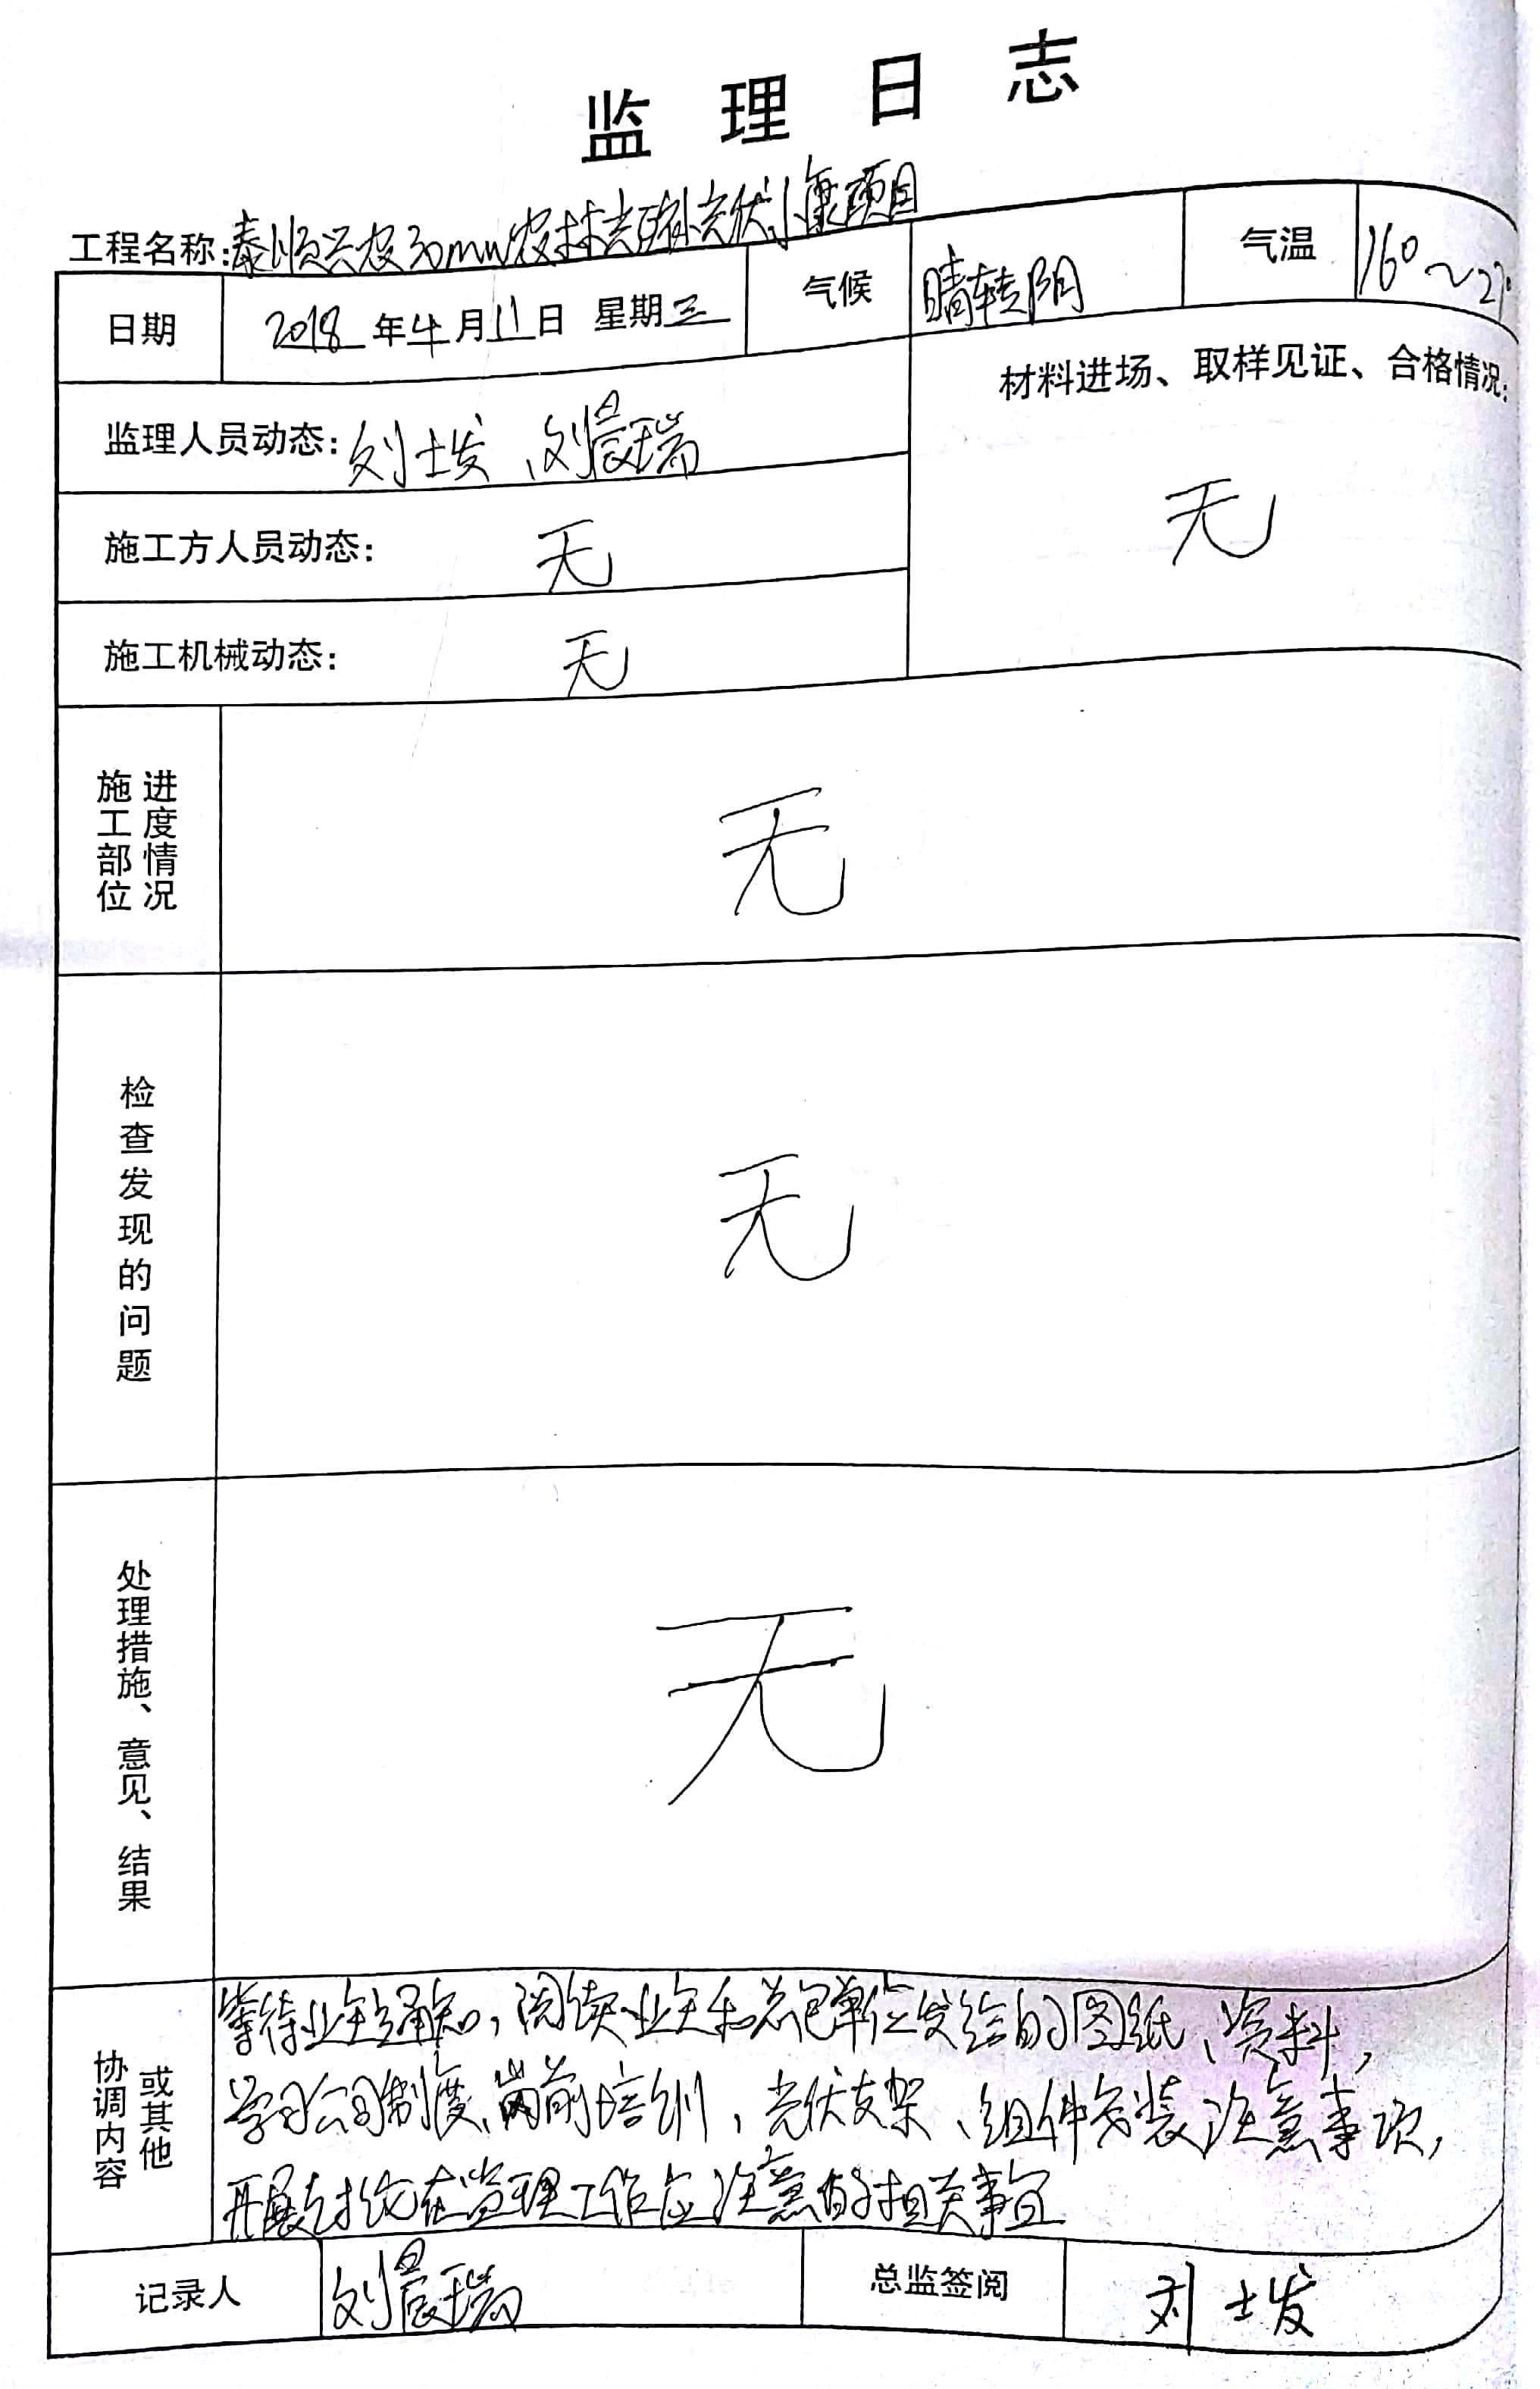 监理日志
工程名称:泰顺兴农30mw农林光互补光伏小康项目
日期 2018年4月11日 星期三 气候 晴转阴 气温 16°~27°
监理人员动态:刘士发、刘晨瑞
材料进场、取样见证、合格情况:
无
施工方人员动态: 无
施工机械动态: 无
施工部位 进度情况
无
检查发现的问题
无
处理措施、意见、结果
无
协调内容 或其他
等待业主通知,阅读业主和总包单位发给的图纸、资料,
学习公司制度、岗前培训,光伏支架、组件安装注意事项,
开展讨论在监理工作应注意的相关事宜
记录人 刘晨瑞 总监签阅 刘士发